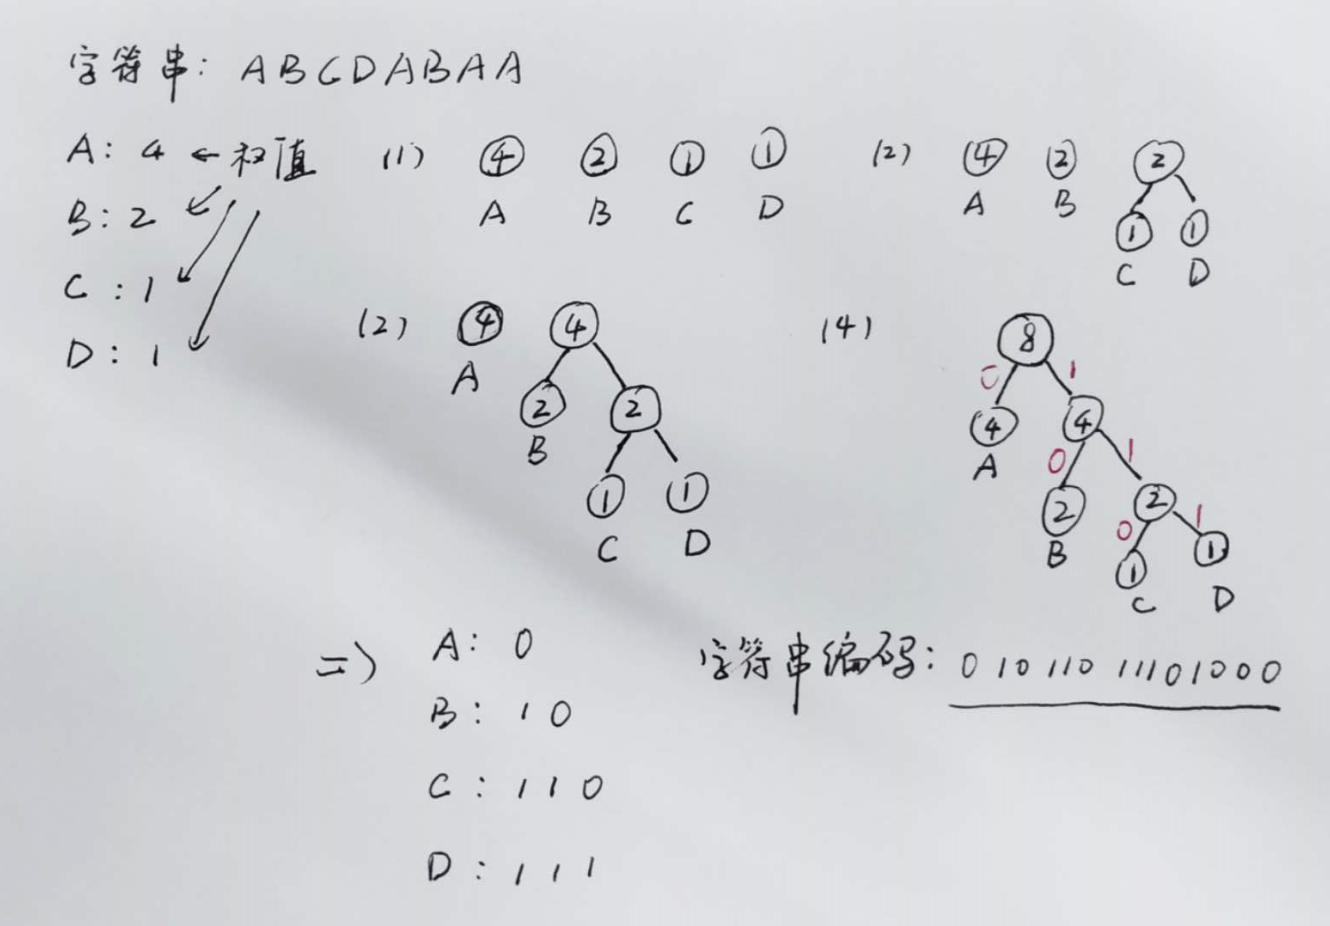 字符串: ABCDABAA
A: 4 ← 权值
B: 2
C: 1
D: 1
(1) 4 2 1 1
A B C D
(2) 4 2 2
A B
1 1
C D
(2) 4 4
A
2 2
B
1 1
C D
(4) 8
0 1
4 4
A
0 1
2 2
B
0 1
1 1
C D
=> A: 0
B: 10
C: 110
D: 111
字符串编码: 0 10 110 11101000